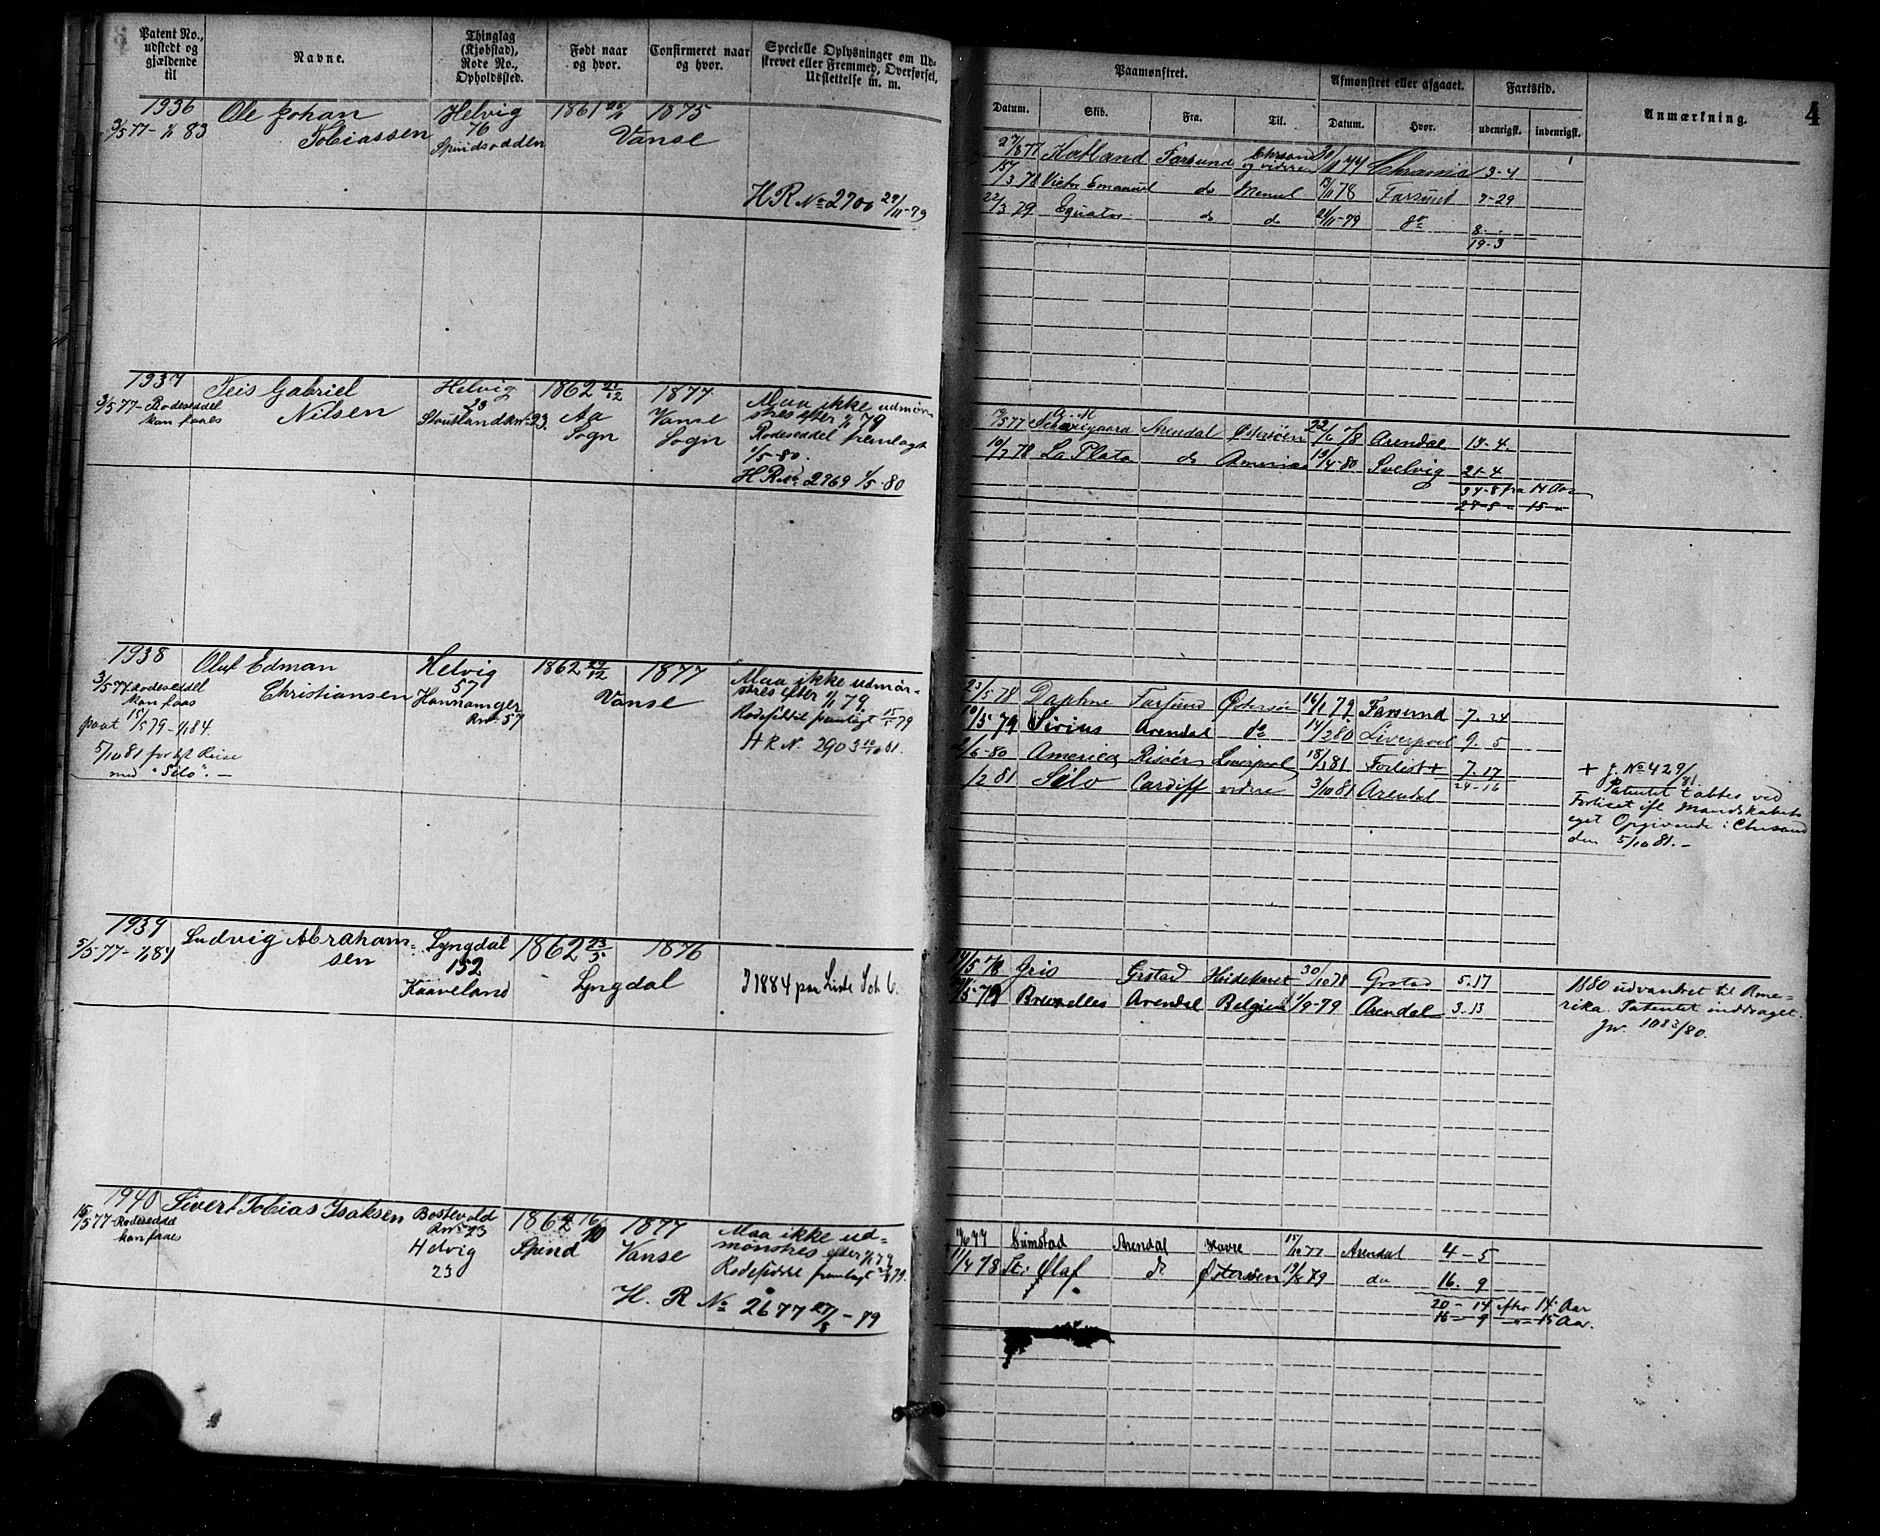 Patent No., udstedt og gjældende til
Navne.
Thinglag (Kjøbstad), Rode No., Opholdssted.
Født naar og hvor.
Confirmeret naar og hvor.
Specielle Oplysninger om Udskrevet eller Fremmed, Overførsel, Udslettelse m. m.
Paamønstret.
Afmønstret eller afgaaet.
Fartstid.
Anmærkning.
4
Datum.
Skib.
Fra.
Til.
Datum.
Hvor.
udenrigst.
indenrigst.
1936 Ole Johan Helvig 1861 1875
3/5 77 - 1/1 83 Tobiassen 76 Vanse
Spindsodden
H R No 2700 29/11-79
27/8 77 Katland Farsund og videre 3-4
15/3 78 Victor Emanuel do Memel 13/11 78 Farsund 7-29
22/3 79 Equator do do 24/11-79 do 8
19-3
1937 Teis Gabriel Helvig 1862 21/12 1877 Maa ikke udmøn-
3/5 77 - Rodeseddel Nilsen 23 Aa Vanse stres efter 1/1 79
kan faaes 23. Sogn Sogn Rodeseddel fremlagt
1/5-80.
H R No 2969 1/5-80
Arendal Østersøen 22/6 78 Arendal 13-4.
10/7 78 La Plata do 19/4-80 Svelvig 21-4
34-8 fra 14 Aar
27-5 " 15 "
1938 Oluf Edman Helvig 1862 29/12 1877 Maa ikke udmøn-
3/5 77 Rodeseddel Christiansen 57 Vanse stres efter 1/1 79.
kan faaes Rno 57 Rodeseddel fremlagt 15/5 79
paat 15/5 79 - 1/1 84. H R N. 2903
5/10 81 for
med "Silo". -
23/5 78 Daphne Farsund Østersøen 16/1 79 Farsund 7. 24
10/5 79 Sirius Arendal do 14/3 80 Liverpool 9. 5
2/6-80 America Risør Liverpool 18/1 81 Forlist + 7. 17
24-16
1/2 81 Silo Cardiff videre 3/10 81 Arendal
+ J. No 429/81
Patentet tabtes ved
Forliset ifl Mandskabets
eget Opgivende i Chrsand
den 5/10 81. -
1939 Ludvig Abraham- Lyngdal 1862 23/5 1876
5/5 77 - 1/1 84 sen 152 Lyngdal I 1884 paa Liste
Kaaveland
19/5 78 Gris Grstad 30/10 78 Grstad 5.17
Bruxelles Arendal Belgien 1/9-79 Arendal 3.13
1880 udvandret til Ame-
rika. Patentet inddraget.
Jn. 1083/80.
1940 Sivert Tobias Isaksen 1862 16/10 1877 Maa ikke ud-
15/5 77 - Rodeseddel Rno 23 Spind Vanse mønstres efter 1/1 79
kan faaes Helvig Rodeseddel fremlagt
23
H. R No 2677 27/5-79
Grimstad Arendal Havre 17/10 77 Arendal 4-5
11/4 78 St. Olaf do Østersøen do 16. 9
20-14 efter 14 Aar
16-9 " 15 Aar.